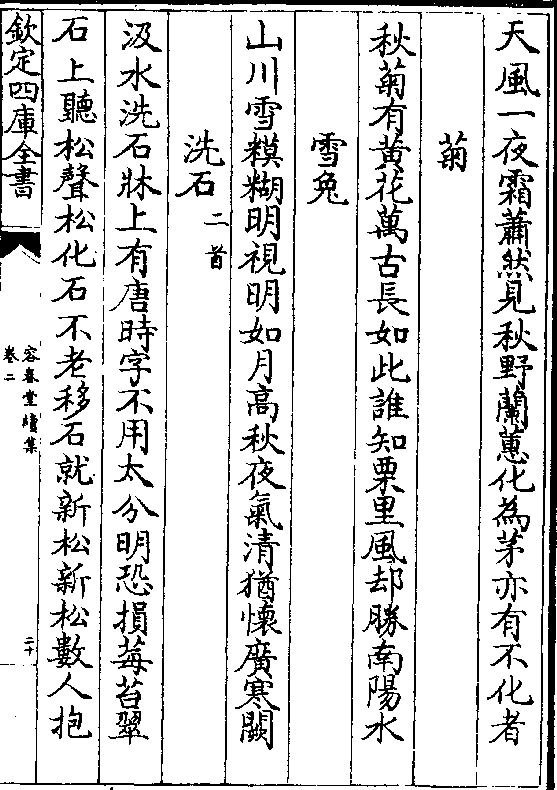 天風一夜霜蕭然見秋野蘭蕙化為茅亦有不化者
菊
秋菊有黃花萬古長如此誰知栗里風却勝南陽水
雪兔
山川雪糢糊明視明如月高秋夜氣清猶懷廣寒闕
洗石二首
汲水洗石牀上有唐時字不用太分明恐損莓苔翠
石上聽松聲松化石不老移石就新松新松數人抱
欽定四庫全書
容春堂續集
卷二
二十